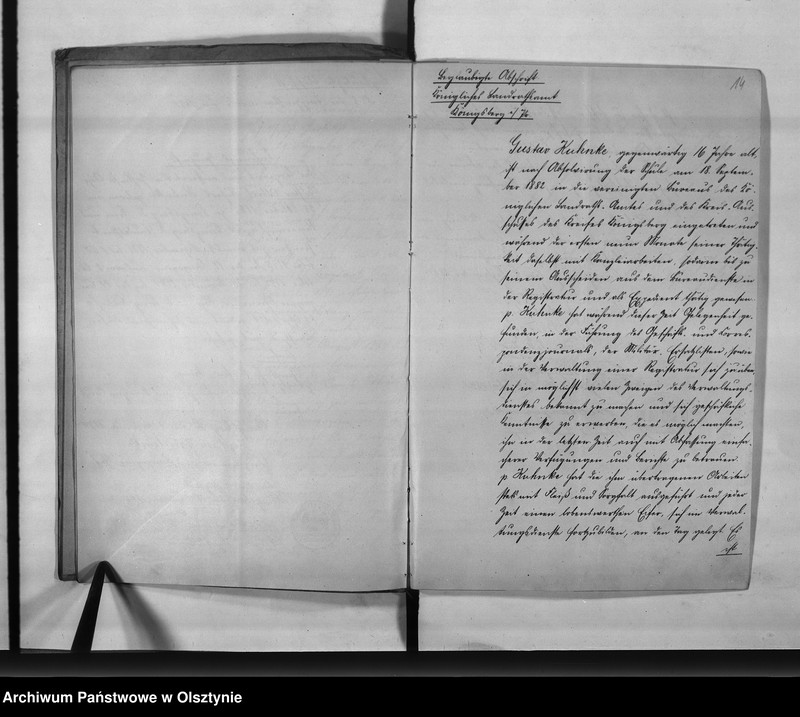 Beglaubigte Abschrift
Königliches Landrathsamt
Königsberg i/Pr
14
Gustav Kuhnke, gegenwärtig 16 Jahre alt,
ist nach Absolvirung der Schule am 18. Septem-
ber 1882 in die vereinigten Bureaus des Kö-
niglichen Landraths-Amtes und des Kreis-Aus-
schußes des Kreises Königsberg eingetreten und
während der ersten neun Monate seiner Thätig-
keit daselbst mit Kanzleiarbeiten, sodann bis zu
seinem Ausscheiden aus dem Bureaudienste in
der Registratur und als Expedient thätig gewesen.
p. Kuhnke hat während dieser Zeit Gelegenheit ge-
funden, in der Führung des Geschäfts- und Corres-
pondenzjournals, der Militär-Ersatzlisten, sowie
in der Verwaltung einer Registratur sich zu üben,
sich in möglichst vielen Zweigen des Verwaltungs-
dienstes bekannt zu machen und sich geschäftliche
Kenntniße zu erwerben, die es möglich machten,
ihn in der letzten Zeit auch mit Abfassung einfa-
cherer Verfügungen und Berichte zu betrauen.
p Kuhnke hat die ihm übertragenen Arbeiten
stets mit Fleiß und Sorgfalt ausgeführt und jeder
Zeit einen lobenswerthen Eifer, sich im Verwal-
tungsdienste fortzubilden, an den Tag gelegt. Er
ist
Archiwum Państwowe w Olsztynie